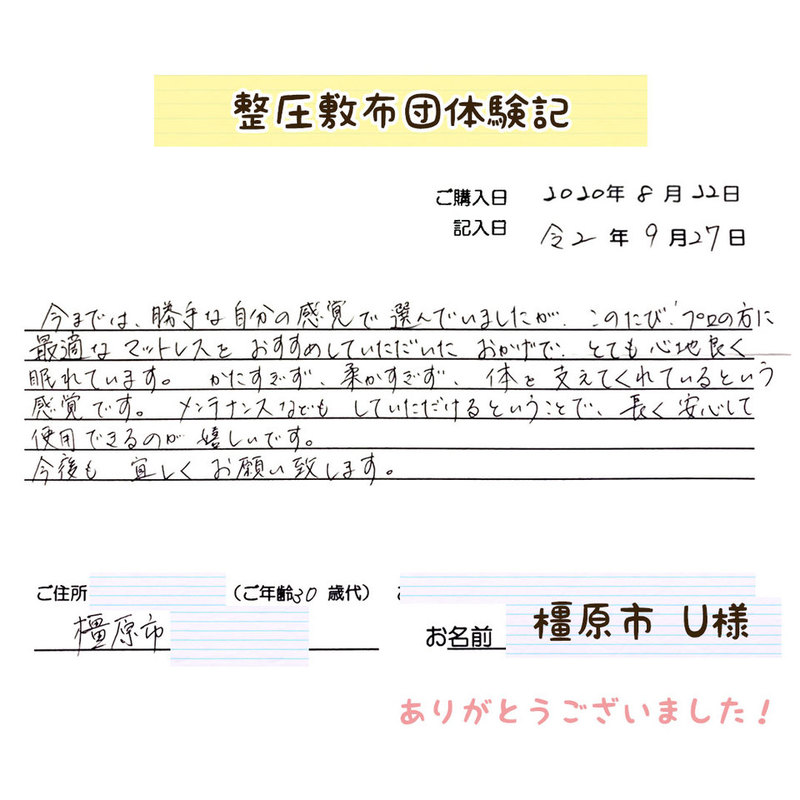 整圧敷布団体験記
ご購入日 2020年8月22日
記入日 令2年9月27日
今までは、勝手な自分の感覚で選んでいましたが、このたび、プロの方に
最適なマットレスをおすすめしていただいたおかげで、とても心地良く
眠れています。かたすぎず、柔かすぎず、体を支えてくれているという
感覚です。メンテナンスなどもしていただけるということで、長く安心して
使用できるのが嬉しいです。
今後も宜しくお願い致します。
ご住所 （ご年齢30歳代）
橿原市
お名前 橿原市 U様
ありがとうございました！